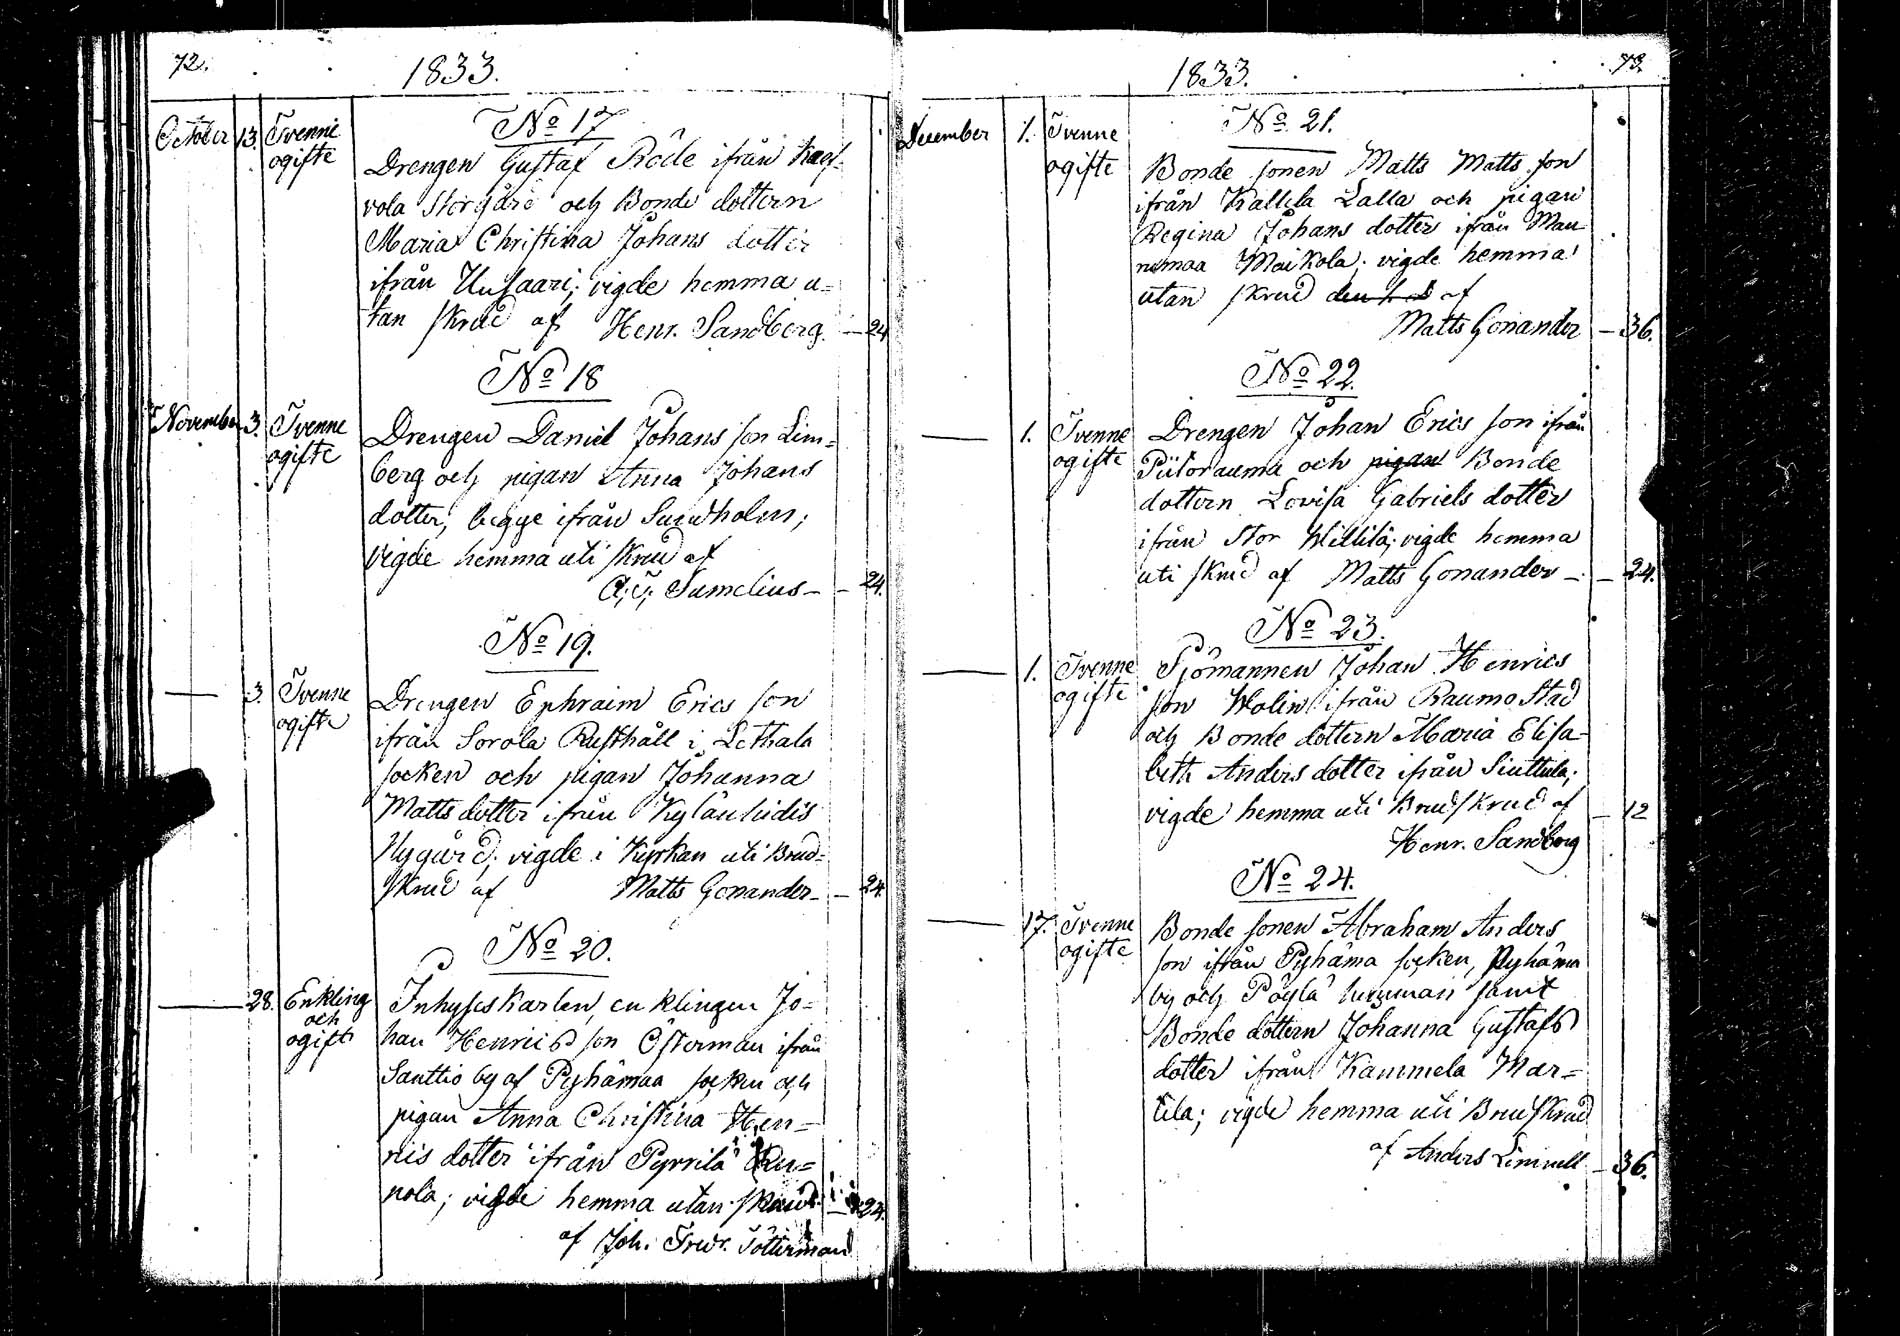 72.
1833.
October 13. Tvenne ogifte
No 17
Drengen Gustaf Röde ifrån
vola Storgård och Bonde dottern
Maria Christina Johans dotter
ifrån Uusaari; vigde hemma u=
tan skrud af Henr. Sandberg. — 24
No 18
November 3. Tvenne ogifte
Drengen Daniel Johans son Lim=
berg och pigan Anna Johans
dotter, begge ifrån Sundholm;
vigde hemma uti skrud af
Sumelius — 24.
No 19.
— 3. Tvenne ogifte
Drengen Ephraim Erics son
ifrån Sorola Rusthåll i Lethala
socken och pigan Johanna
Matts dotter ifrån Kylänhidis
Nygård; vigde i Kyrkan uti Brud=
skrud af Matts Gonander — 24.
No 20.
— 28. Enkling och ogift
Inhyses Karlen, enklingen Jo=
han Henrics son Österman ifrån
Santtio by af Pyhämaa socken och
pigan Anna Christina Hen=
rics dotter ifrån Pyrrilä
nola; vigde hemma utan skrud — 24.
af Joh. Fredr. Tötterman
73.
1833.
December 1. Tvenne ogifte
No 21.
Bonde sonen Matts Matts son
ifrån Kallela Lalla och pigan
Regina Johans dotter ifrån Man
namaa Maikola; vigde hemma
utan skrud af
Matts Gonander — 36.
No 22.
— 1. Tvenne ogifte
Drengen Johan Erics son ifrån
Piilorauma och pigan Bonde
dottern Lovisa Gabriels dotter
ifrån Stor Willilä; vigde hemma
uti skrud af Matts Gonander — 24.
No 23.
— 1. Tvenne ogifte
Sjömannen Johan Henrics
son Wolin ifrån Raumo Stad
och Bonde dottern Maria Elisa-
beth Anders dotter ifrån Siuttila;
vigde hemma uti Brudskrud af — 12
Henr. Sandberg
No 24.
— 17. Tvenne ogifte
Bonde sonen Abraham Anders
son ifrån Pyhäma socken, Pyhäma
by och Pöylä hemman samt
Bonde dottern Johanna Gustafs
dotter ifrån Kammela Mar=
tila; vigde hemma uti Brudskrud
af Anders Limnell — 36.